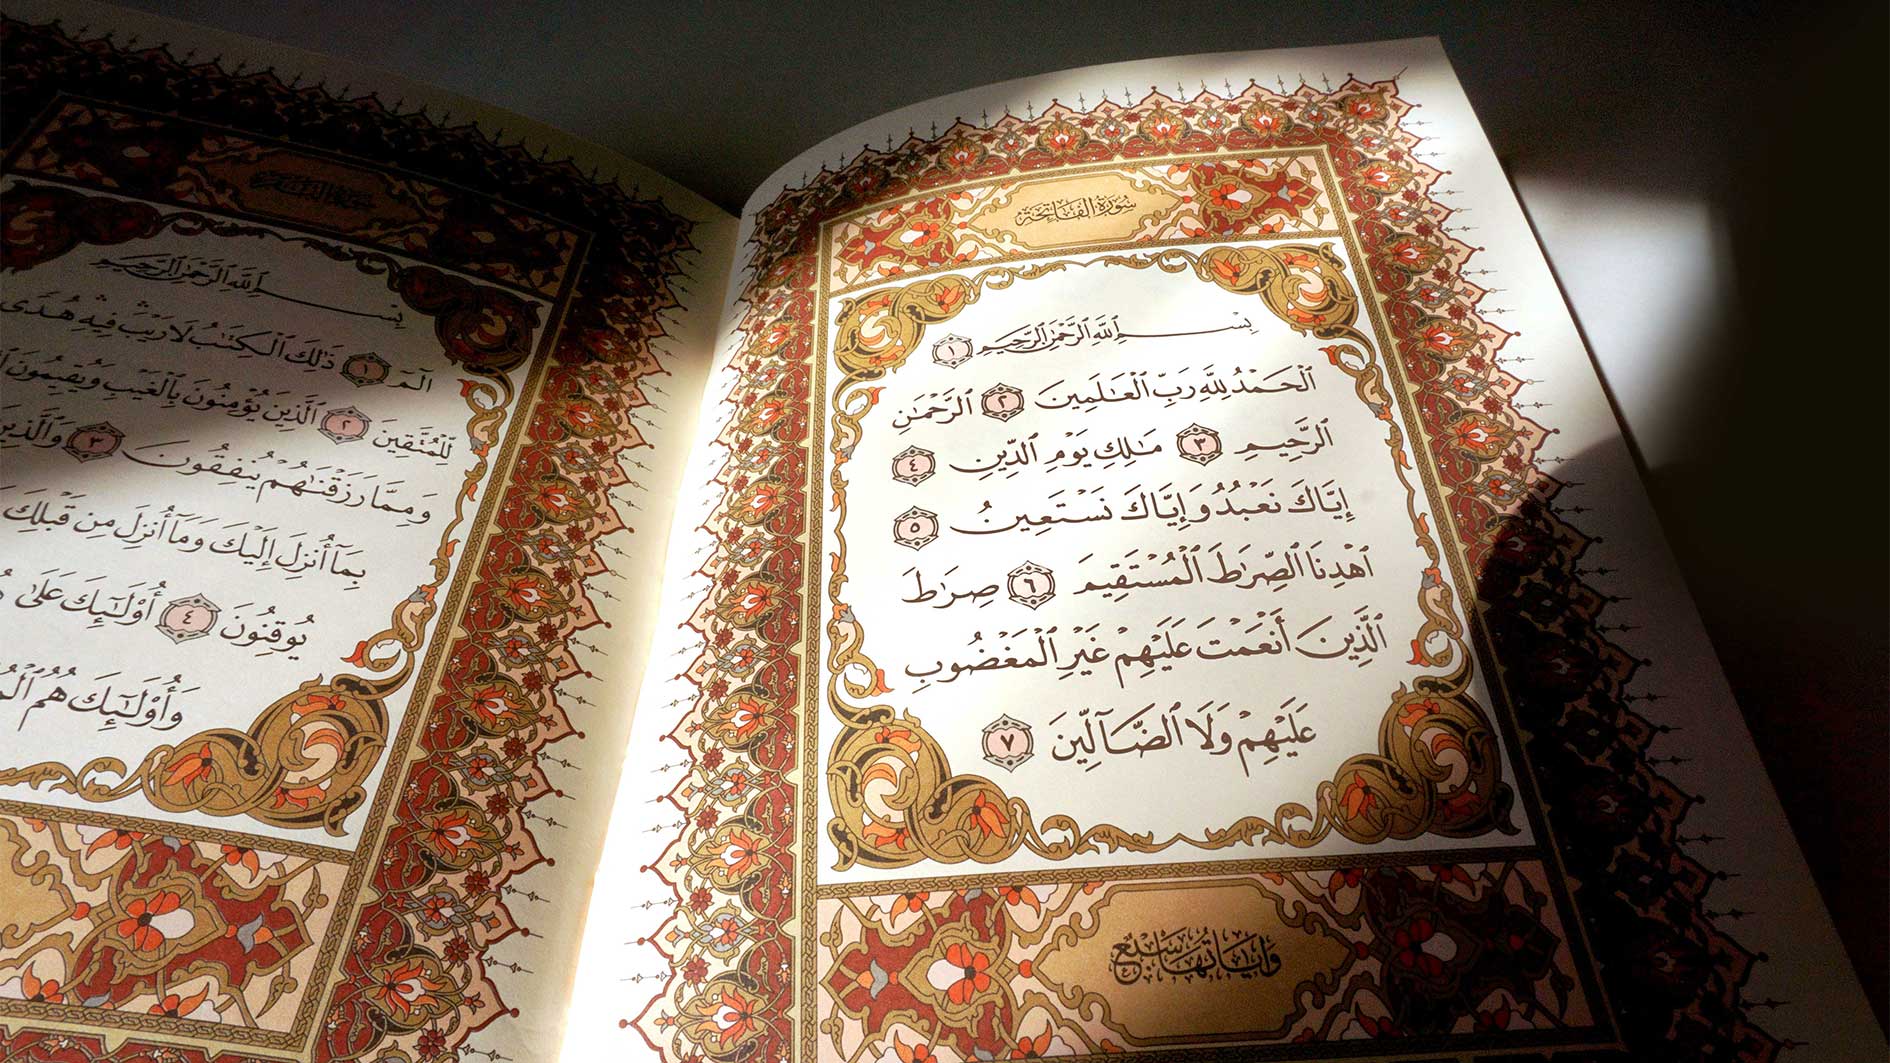 سُورَةُ الْفَاتِحَةِ
بِسْمِ ٱللَّهِ ٱلرَّحْمَٰنِ ٱلرَّحِيمِ ١
ٱلْحَمْدُ لِلَّهِ رَبِّ ٱلْعَٰلَمِينَ ٢ ٱلرَّحْمَٰنِ
ٱلرَّحِيمِ ٣ مَٰلِكِ يَوْمِ ٱلدِّينِ ٤
إِيَّاكَ نَعْبُدُ وَإِيَّاكَ نَسْتَعِينُ ٥
ٱهْدِنَا ٱلصِّرَٰطَ ٱلْمُسْتَقِيمَ ٦ صِرَٰطَ
ٱلَّذِينَ أَنْعَمْتَ عَلَيْهِمْ غَيْرِ ٱلْمَغْضُوبِ
عَلَيْهِمْ وَلَا ٱلضَّآلِّينَ ٧
وَآيَاتُهَا سَبْعٌ
بِسْمِ ٱللَّهِ ٱلرَّحْمَٰنِ ٱلرَّحِيمِ
الٓمٓ ١ ذَٰلِكَ ٱلْكِتَٰبُ لَا رَيْبَۛ فِيهِۛ هُدًى
لِّلْمُتَّقِينَ ٢ ٱلَّذِينَ يُؤْمِنُونَ بِٱلْغَيْبِ وَيُقِيمُونَ
وَمِمَّا رَزَقْنَٰهُمْ يُنفِقُونَ ٣ وَٱلَّذِينَ
بِمَآ أُنزِلَ إِلَيْكَ وَمَآ أُنزِلَ مِن قَبْلِكَ
يُوقِنُونَ ٤ أُو۟لَٰٓئِكَ عَلَىٰ
وَأُو۟لَٰٓئِكَ هُمُ